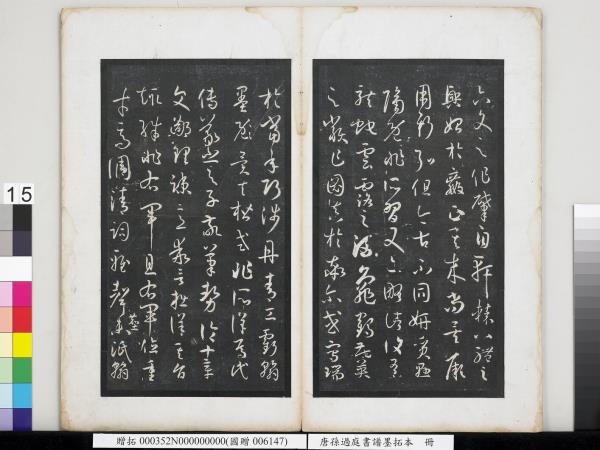 六文之作肇自軒轅八體之
興始於嬴正其來尚矣厥
用斯弘但今古不同妍質懸
隔既非所習又亦略諸復有
龍蛇雲露之流龜鶴花英
之類乍圖真於率爾或寫瑞
於當年巧涉丹青工虧翰
墨異夫楷式非所詳焉代
傳羲之與子敬筆勢論十章
文鄙理疎意乖言拙詳其旨
趣殊非右軍且右軍位重
才高調清詞雅聲塵未泯翰
15
贈拓 000352N000000000(國贈 006147)
唐孫過庭書譜墨拓本 冊